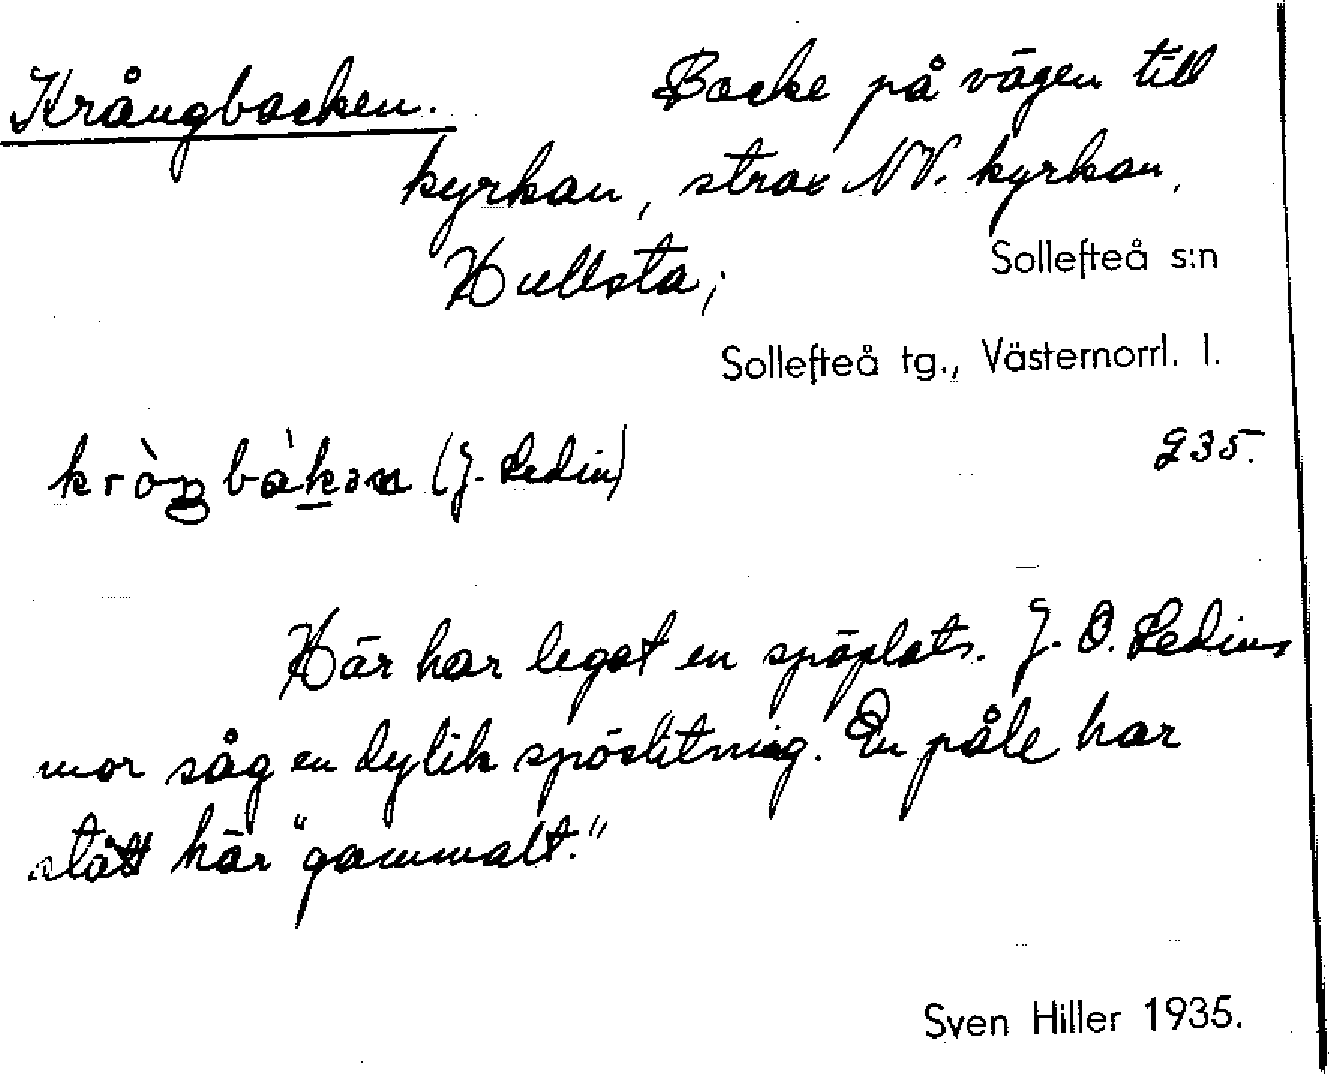 Krångbacken. Backe på vägen till
kyrkan, strax NV. kyrkan,
Hullsta; Sollefteå s:n
Sollefteå tg., Västernorrl. l.
(J. Ledin) 235.
Här har legat en spöplats. J. O. Ledins
mor såg en dylik spöslitning. En påle har
stått här "gammalt."
Sven Hiller 1935.